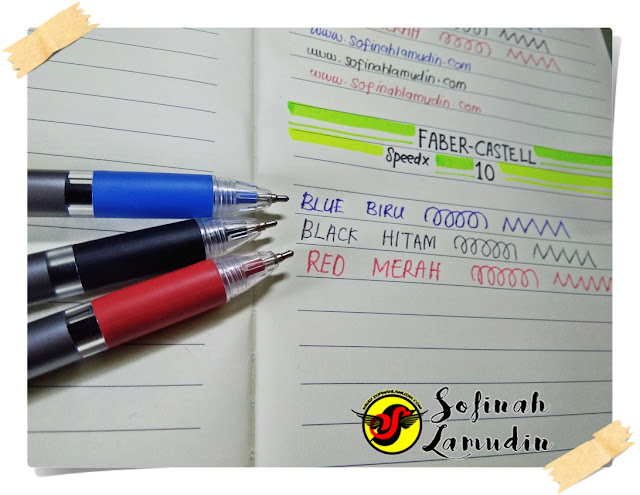 www.sofinahlamudin.com
www.sofinahlamudin.com
www.sofinahlamudin.com
FABER-CASTELL
Speedx 10
BLUE BIRU
BLACK HITAM
RED MERAH
Sofinah
Lamudin